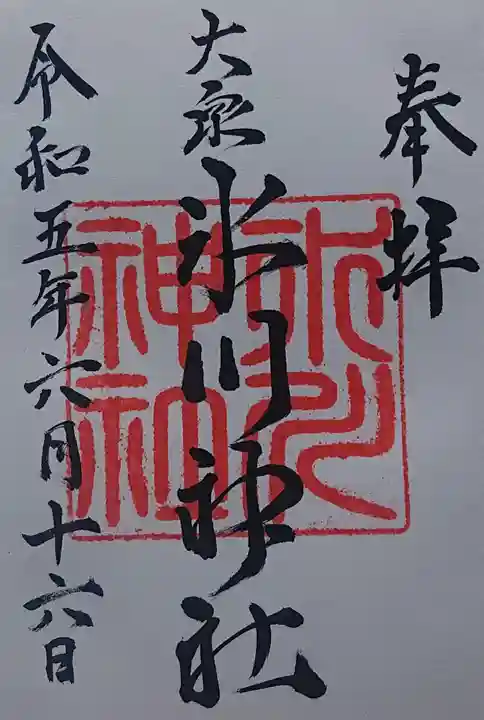 奉拝
大泉 氷川神社
令和五年六月十六日
氷川神社